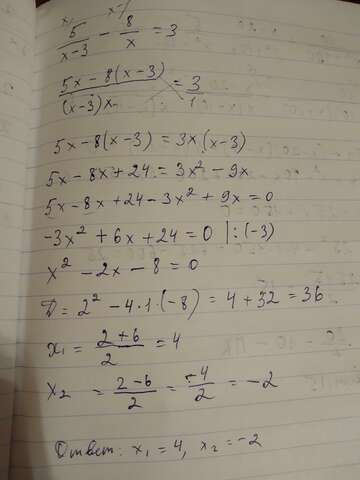 x/ x-3/
5/(x-3) - 8/x = 3
(5x - 8(x-3))/((x-3)x) = 3/1
5x - 8(x-3) = 3x(x-3)
5x - 8x + 24 = 3x² - 9x
5x - 8x + 24 - 3x² + 9x = 0
-3x² + 6x + 24 = 0 |:(-3)
x² - 2x - 8 = 0
D = 2² - 4·1·(-8) = 4 + 32 = 36
x₁ = (2+6)/2 = 4
x₂ = (2-6)/2 = -4/2 = -2
Ответ: x₁ = 4, x₂ = -2